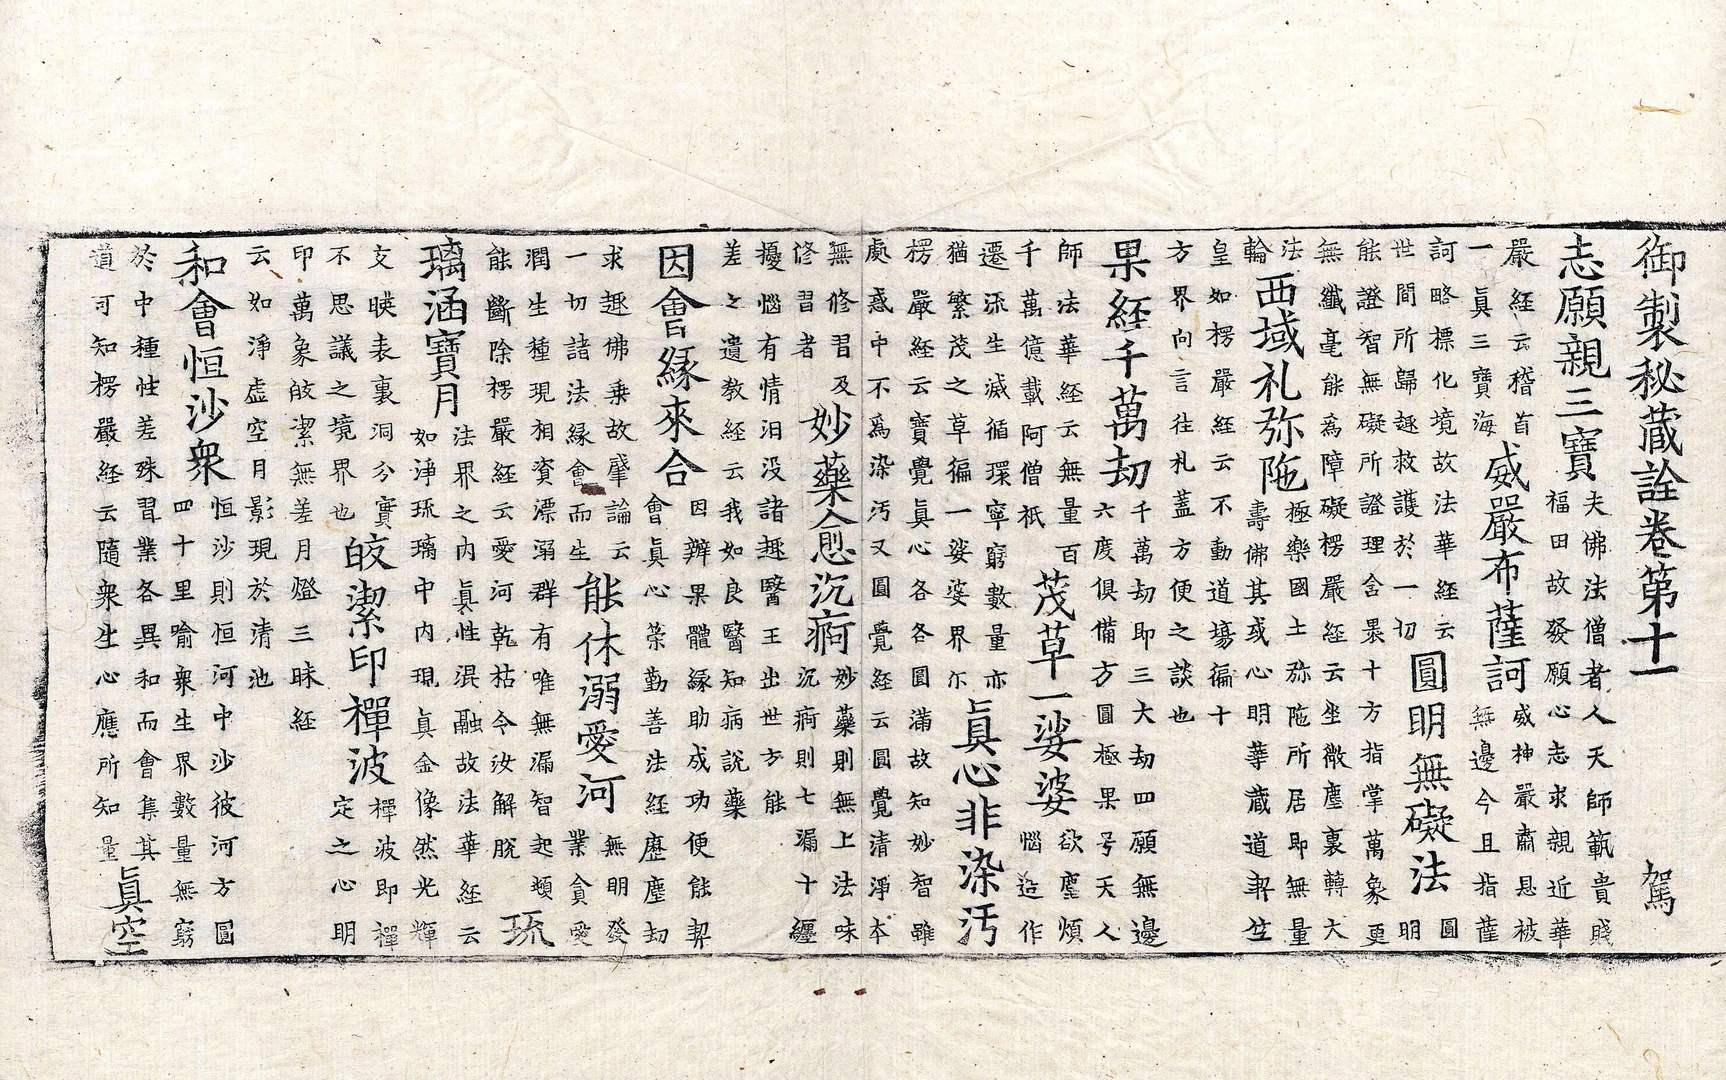 御製秘藏詮卷第十一　駕
志願親三寶
夫佛法僧者人天師範貴賤
福田故發願心志求親近華
嚴經云稽首
一眞三寶海
威嚴布薩訶
威神嚴肅恩被
無邊今且指薩
訶略標化境故法華經云
世間所歸趣救護於一切
圓明無礙法
圓
明
能證智無礙所證理舍暴十方指掌萬象更
無纖毫能爲障礙楞嚴經云坐微塵裏轉大
法
輪
西域礼弥陁
極樂國土弥陁所居即無量
壽佛其或心明華藏道契生
皇如楞嚴經云不動道場徧十
方界向言往礼蓋方便之談也
果經千萬刧
千萬刧即三大刧四願無邊
六度俱備方圓極果号天人
師法華經云無量百
千萬億載阿僧祇
茂草一娑婆
欲塵煩
惱造作
遷流生滅循環寧窮數量亦
猶繁茂之草徧一娑婆界尒
眞心非染汚
楞嚴經云寶覺眞心各各圓滿故知妙智雖
處惑中不爲染汚又圓覺經云圓覺清淨本
無修習及
修習者
妙藥愈沉痾
妙藥則無上法味
沉痾則七漏十纏
擾惱有情汨没諸趣醫王出世方能
差之遺教經云我如良醫知病說藥
因會縁來合
因辦果體縁助成功便能契
會眞心榮勤善法經歷塵刧
求趣佛乗故肇論云
一切諸法縁會而生
能休溺愛河
無明發
業貪愛
潤生種現相資漂溺群有唯無漏智起頓
能斷除楞嚴經云愛河乾枯令汝解脫
琉
璃涵寶月
法界之内眞性混融故法華經云
如淨琉璃中内現眞金像然光輝
交暎表裏洞分實
不思議之境界也
皎潔印禪波
禪波即禪
定之心明
印萬象皎潔無差月燈三昧經
云如淨虚空月影現於清池
和會恒沙衆
恒沙則恒河中沙彼河方圓
四十里喻衆生界數量無窮
於中種性差殊習業各異和而會集其
道可知楞嚴經云隨衆生心應所知量
眞空